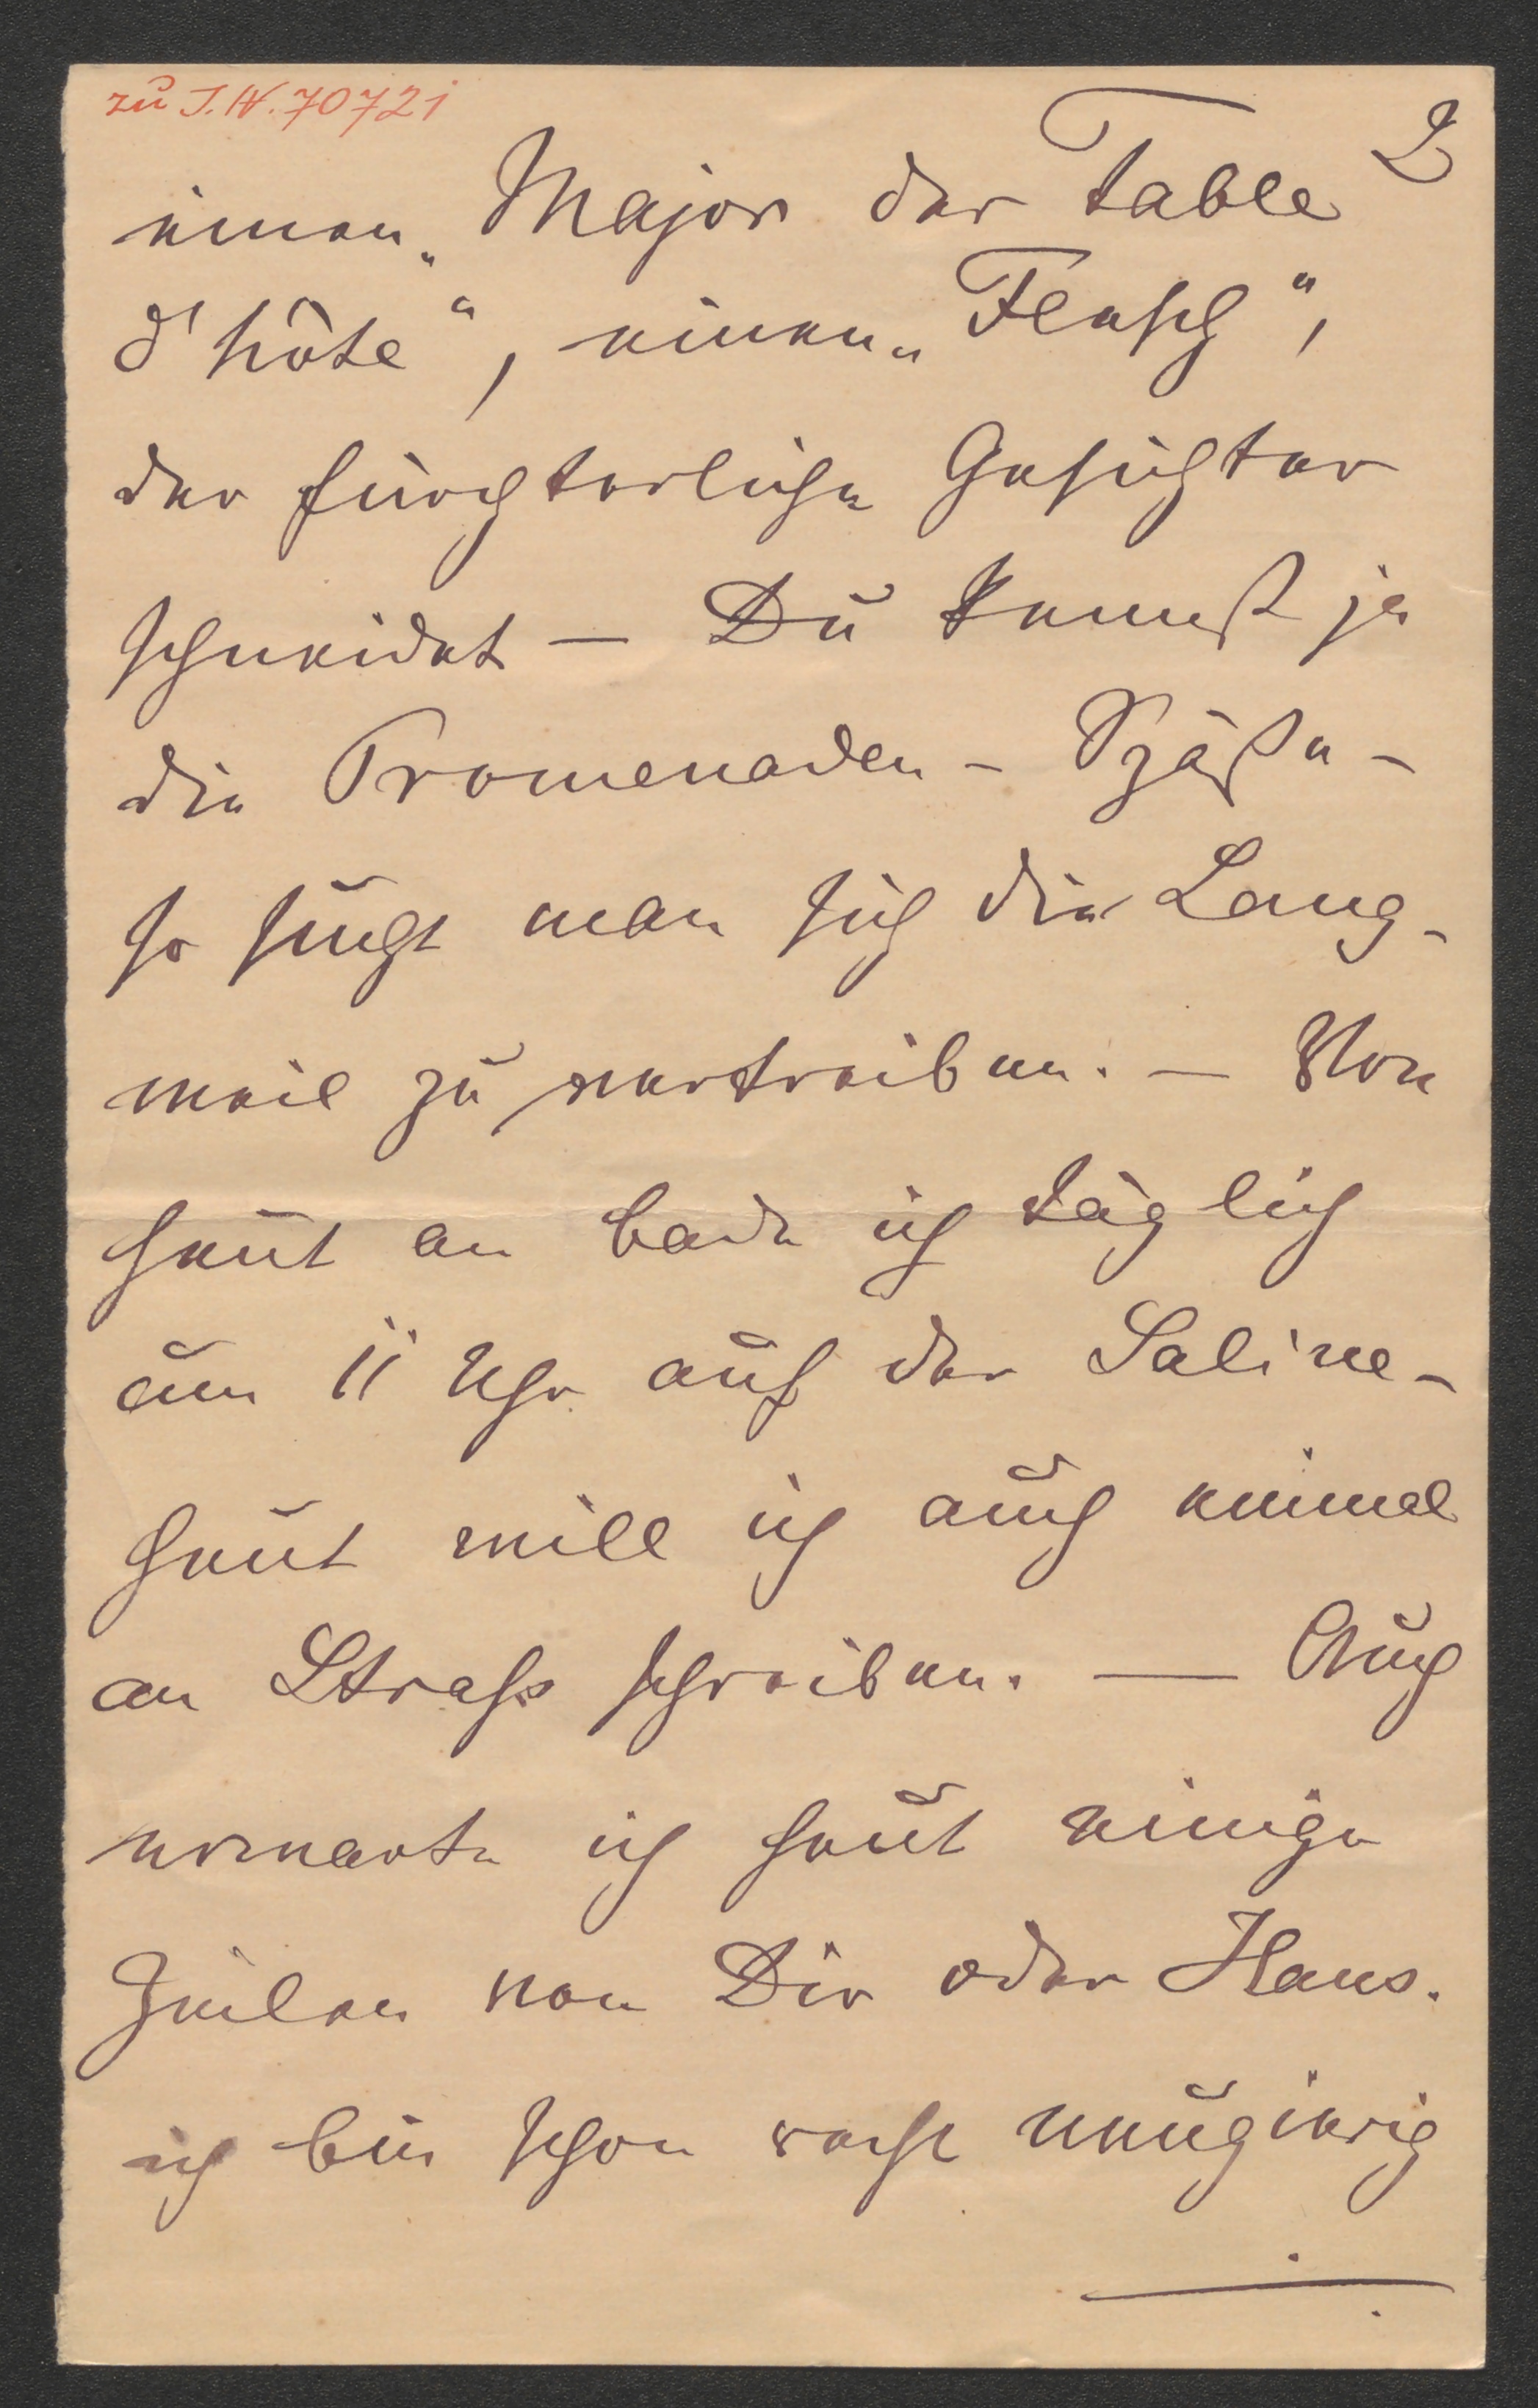 zu I.N. 70721
2
einen „Major der Table
d'hôte“, einen „Flasch“,
der fürchterliche Gesichter
schneidet — Du kennst ja
die Promenaden-Späße –
so sucht man sich die Lang-
weil zu vertreiben. — Von
heut an bade ich täglich
um 11 Uhr auf der Saline –
heut will ich auch einmal
an Strass schreiben. — Auch
erwarte ich heut einige
Zeilen von Dir oder Hans.
ich bin schon recht neugierig